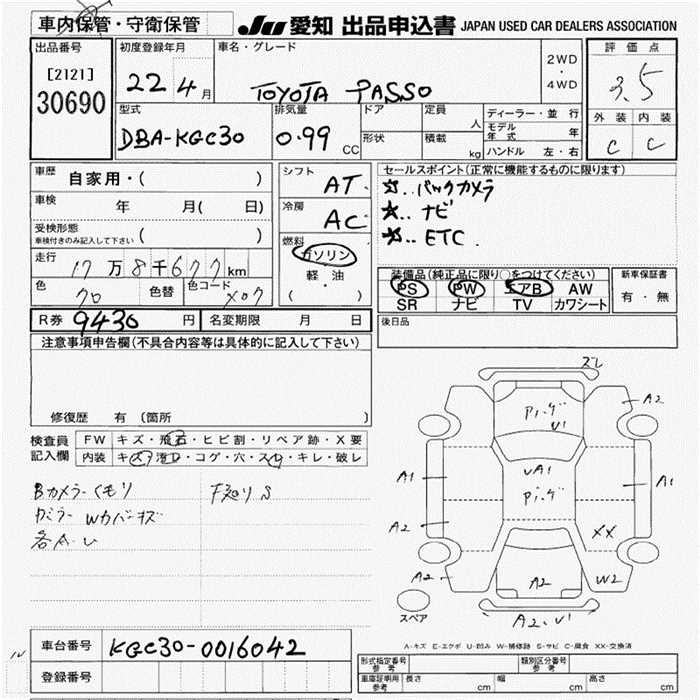 車内保管・守衛保管
JU 愛知 出品申込書 JAPAN USED CAR DEALERS ASSOCIATION
出品番号
[2121]
30690
初度登録年月
22年4月
車名・グレード
TOYOTA PASSO
2WD
・
4WD
評価点
3.5
外装 内装
C C
型式
DBA-KGC30
排気量
0.99 CC
ドア
形状
定員 人
積載 kg
ディーラー・並行
モデル年式 年
ハンドル 左・右
車歴 自家用・( )
車検 年 月( 日)
受検形態
車検付きのみ記入して下さい ( )
走行 17万8千677km
色 クロ 色替 色コード X07
シフト AT
冷房 AC
燃料 ガソリン
軽・油
( )
セールスポイント(正常に機能するものに限ります)
☆..バックカメラ
☆..ナビ
☆..ETC.
装備品(純正品に限り○をつけてください)
PS PW エアB AW
SR ナビ TV カワシート
新車保証書
有・無
R券 9430円 名変期限 月 日
後日品
注意事項申告欄(不具合内容等は具体的に記入して下さい)
修復歴 有(箇所 )
検査員記入欄
FW キズ・飛石・ヒビ割・リペア跡・X要
内装 キズ・汚レ・コゲ・穴・スレ・キレ・破レ
Bカメラ-くモリ F廻りS
Wカバーキズ
各A.U
スレ
A2
U1
A1
UA1
A1
A2
XX
A2
A2
W2
A2.U1
スペア
A-キズ E-エクボ U-凹み W-補修跡 S-サビ C-腐食 XX-交換済
車台番号 KGC30-0016042
登録番号
形式指定番号 参考
類別区分番号 参考
車庫証明用 参考 長さ cm 幅 cm 高さ cm